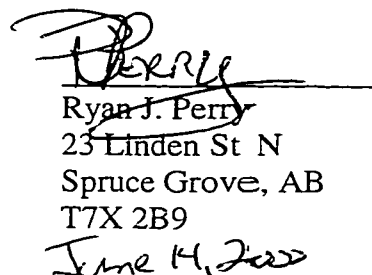 RPERRY
Ryan J. Perry
23 Linden St N
Spruce Grove, AB
T7X 2B9
June 14, 2000